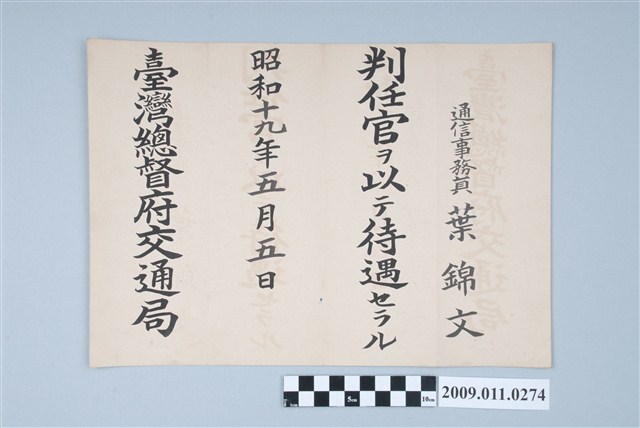 通信事務員 葉錦文
判任官ヲ以テ待遇セラル
昭和十九年五月五日
臺灣總督府交通局
5cm 10cm
2009.011.0274